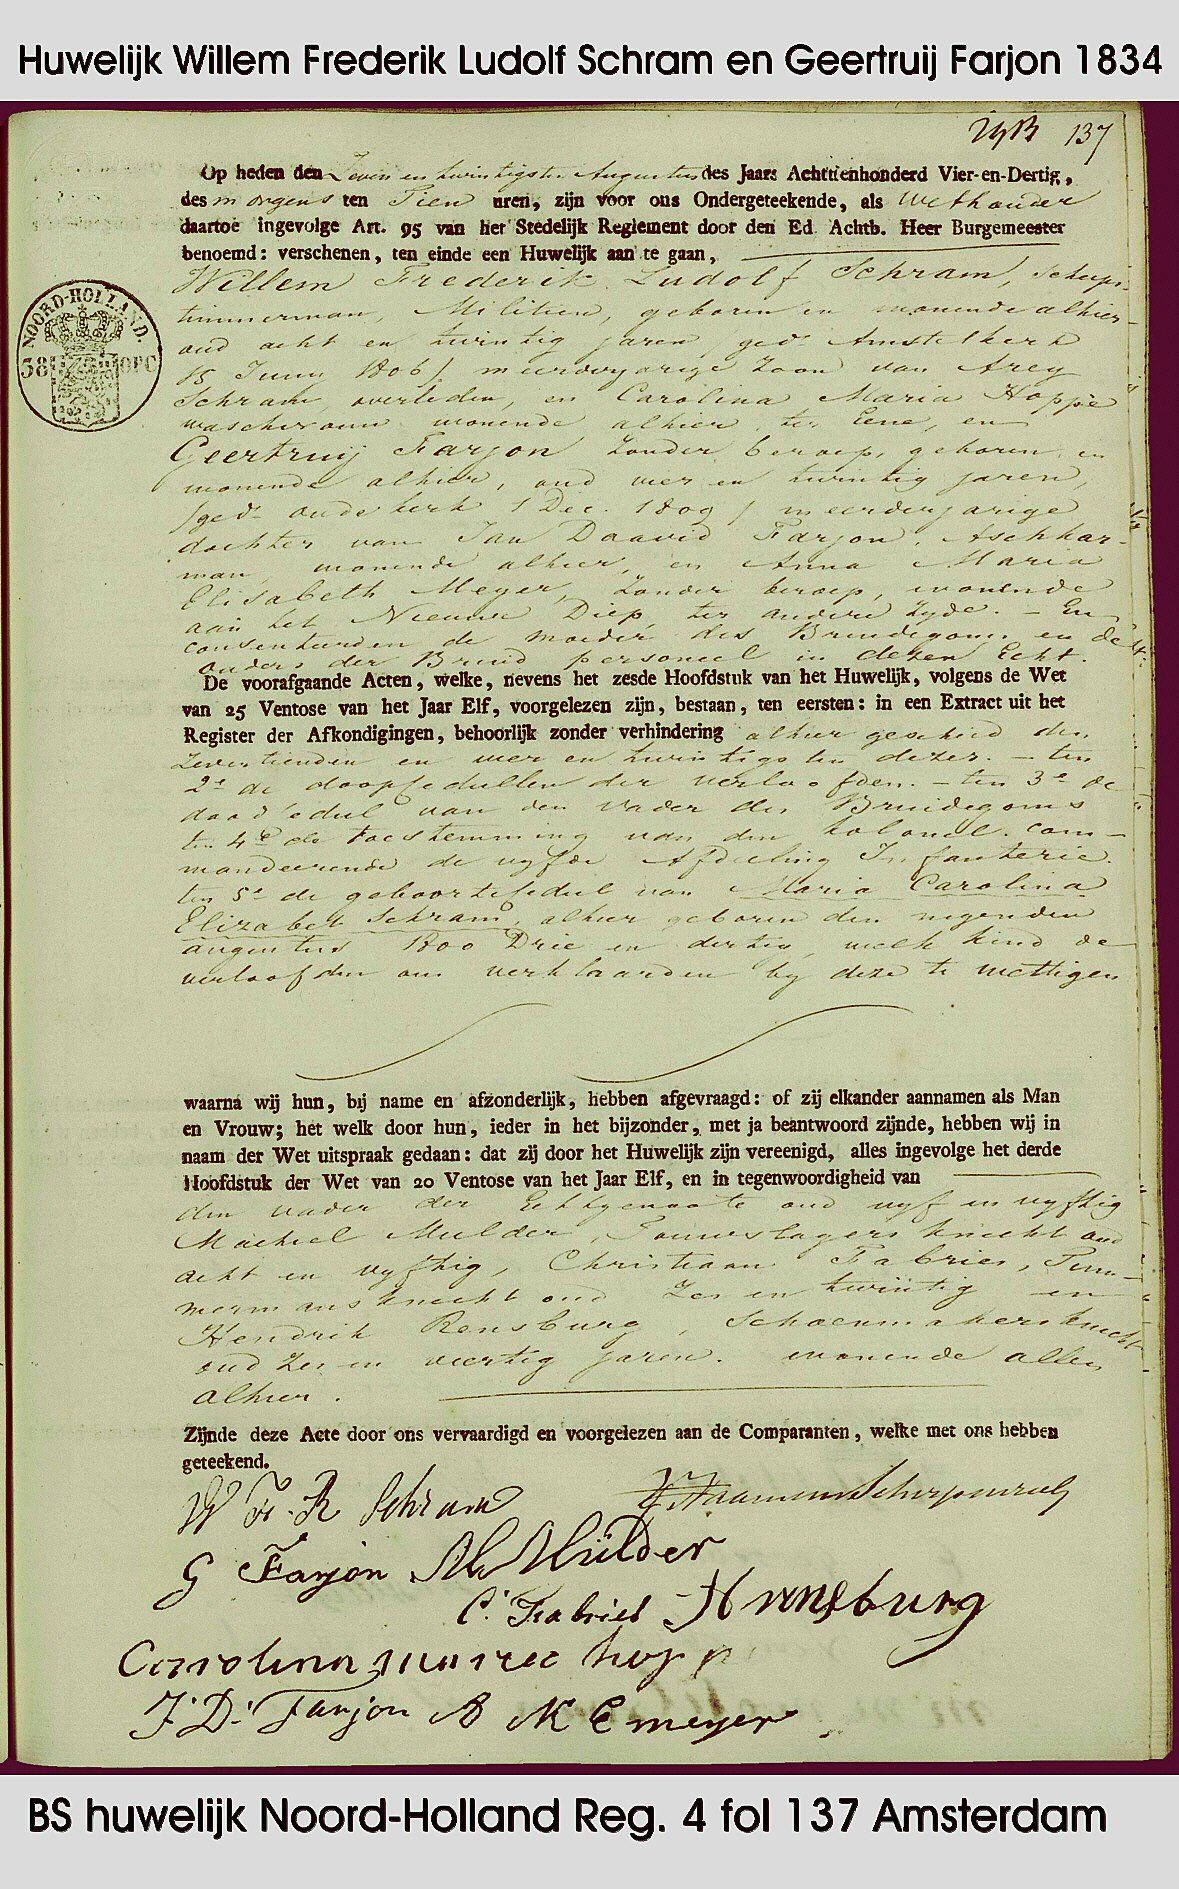 Huwelijk Willem Frederik Ludolf Schram en Geertruij Farjon 1834
137
Op heden den Zeven en twintigsten Augustus des Jaars Achttienhonderd Vier-en-Dertig,
des morgens ten Tien uren, zijn voor ons Ondergeteekende, als Wethouder
daartoe ingevolge Art. 95 van het Stedelijk Reglement door den Ed. Achtb. Heer Burgemeester
benoemd: verschenen, ten einde een Huwelijk aan te gaan,
Willem Frederik Ludolf Schram, Scheeps-
timmerman, Militien, geboren en wonende alhier
oud acht en twintig jaren, ged. Amstelkerk
15 Juny 1806/ meerderjarige Zoon van Arey
Schram overleden, en Carolina Maria Hoppe
waschvrouw wonende alhier, ter Eene, en
Geertruij Farjon Zonder beroep, geboren en
wonende alhier, oud vier en twintig jaren,
/ged. oude kerk 1 Dec. 1809/ meerderjarige
dochter van Jan Daavid Farjon, Aschkar-
man, wonende alhier, en Anna Maria
Elisabeth Meyer, Zonder beroep, wonende
aan het Nieuwe Diep, ter andere Zyde. - En
consenteerden de moeder des Bruidegoms en de
ouders der Bruid personeel in dezen Echt.
De voorafgaande Acten, welke, nevens het zesde Hoofdstuk van het Huwelijk, volgens de Wet
van 25 Ventose van het Jaar Elf, voorgelezen zijn, bestaan, ten eersten: in een Extract uit het
Register der Afkondigingen, behoorlijk zonder verhindering alhier geschied den
Zeventienden en vier en twintigsten dezer. - ten
2e de doopcedullen der verloofden. - ten 3e de
doodcedul van den vader des Bruidegoms
ten 4e de toestemming van den kolonel. com-
mandeerende de vyfde Afdeeling Infanterie.
ten 5e de geboortecedul van Maria Carolina
Elizabet Schram, alhier geboren den negenden
augustus 1800 Drie en dertig, welk kind de
verloofden ons verklaarden by deze te wettigen
waarna wij hun, bij name en afzonderlijk, hebben afgevraagd: of zij elkander aannamen als Man
en Vrouw; het welk door hun, ieder in het bijzonder, met ja beantwoord zijnde, hebben wij in
naam der Wet uitspraak gedaan: dat zij door het Huwelijk zijn vereenigd, alles ingevolge het derde
Hoofdstuk der Wet van 20 Ventose van het Jaar Elf, en in tegenwoordigheid van
den vader der Echtgenoote oud vyf en vyftig
Machiel Mulder, Touwslagersknecht oud
acht en vyftig, Christiaan Fabries, Tim-
mermansknecht oud Zes en twintig en
Hendrik Rensburg, Schoenmakersknecht
oud Zes en veertig jaren. wonende allen
alhier.
Zijnde deze Acte door ons vervaardigd en voorgelezen aan de Comparanten, welke met ons hebben
geteekend.
W F. R Schram
G Farjon M Mülder
C. Fabries H Rensburg
Carolina maria hopp
J. D. Farjon A M E meyer
NOORD-HOLLAND.
38
BS huwelijk Noord-Holland Reg. 4 fol 137 Amsterdam